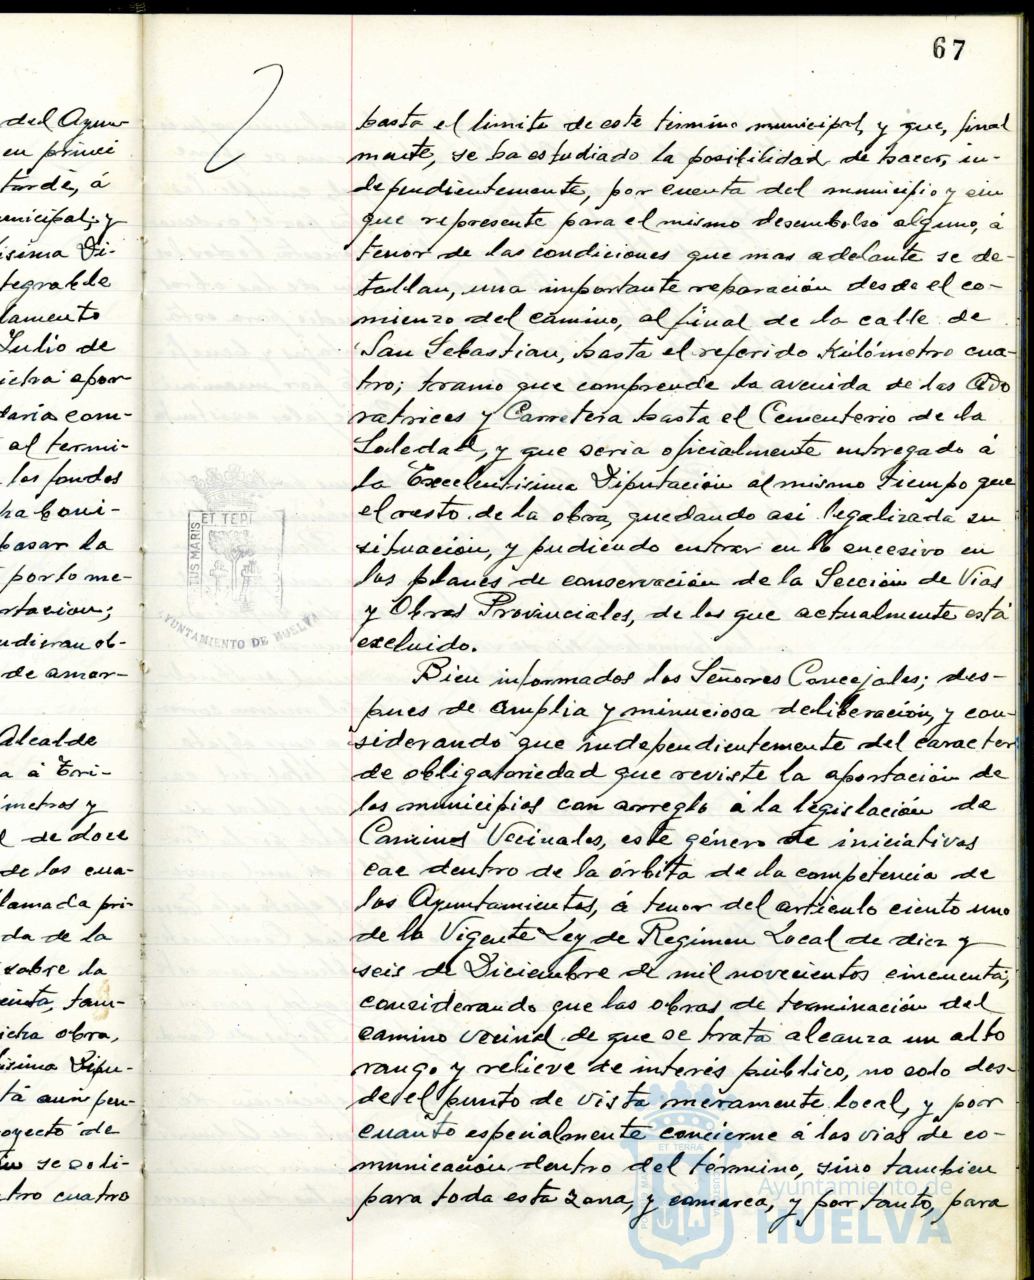 67
del Ayun-
en princi
tarde, á
unicipal; y
ísima Di-
tegrable
lamento
Julio de
icha apor-
daria com-
al termi-
los fondos
ha boni-
pasar la
por lo me-
ortacion;
udieran ob-
de amor-
Alcalde
a á Tri-
imetros y
de doce
de los cua-
llamada pri-
da de la
sobre la
cinta, tam-
icha obra,
ísima Dipu-
tá aun pen-
royecto de
se soli-
tro cuatro
hasta el límite de este término municipal, y que, final
mente, se ha estudiado la posibilidad de hacer, in-
dependientemente, por cuenta del municipio y sin
que represente para el mismo desembolso alguno, á
tenor de las condiciones que mas adelante se de-
tallan, una importante reparación desde el co-
mienzo del camino, al final de la calle de
San Sebastian, hasta el referido Kilómetro cua-
tro; tramo que comprende la avenida de las Ado
ratrices y Carretera hasta el Cementerio de la
Soledad, y que seria oficialmente entregado á
la Excelentisima Diputación al mismo tiempo que
el resto de la obra, quedando asi legalizada su
situación, y pudiendo entrar en lo sucesivo en
los planes de conservación de la Sección de Vias
y Obras Provinciales, de los que actualmente está
excluido.
Bien informados los Señores Concejales; des-
pues de amplia y minuciosa deliberación, y con-
siderando que independientemente del caracter
de obligatoriedad que reviste la aportación de
los municipios con arreglo á la legislación de
Caminos Vecinales, este género de iniciativas
cae dentro de la órbita de la competencia de
los Ayuntamientos, á tenor del artículo ciento uno
de la Vigente Ley de Regimen Local de diez y
seis de Diciembre de mil novecientos cincuenta;
considerando que las obras de terminación del
camino vecinal de que se trata alcanza un alto
rango y relieve de interés público, no solo des-
de el punto de vista meramente local, y por
cuanto especialmente concierne á las vias de co-
municación dentro del término, sino tambien
para toda esta zona, y comarca, y por tanto, para
TUS MARIS
ET TEPI
AYUNTAMIENTO DE HUELVA
ET TERRÆ
Ayuntamiento de
HUELVA